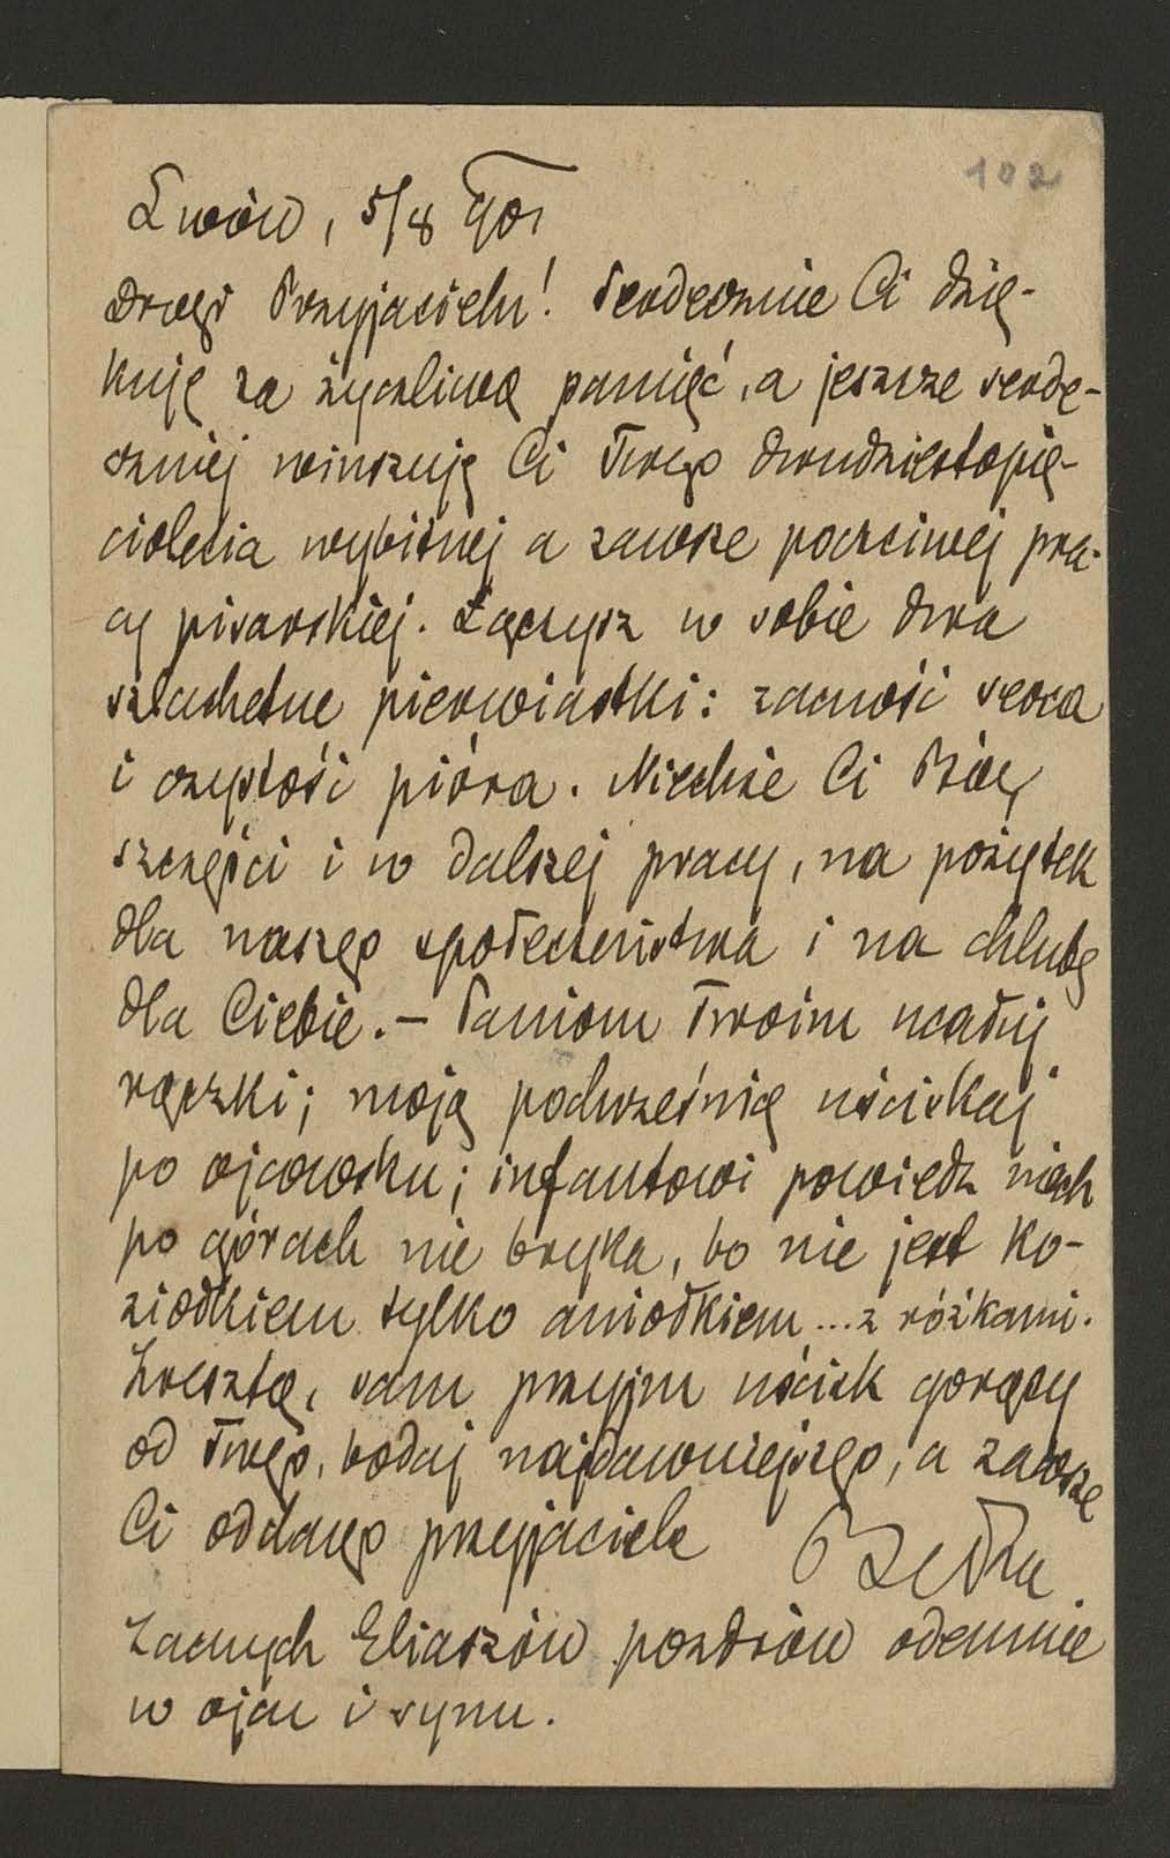 102
Lwów, 5/8 901
Drogi Przyjacielu! Serdecznie Ci dzię-
kuję za życzliwą pamięć, a jeszcze serde-
czniej winszuję Ci Twego dwudziestopię-
ciolecia wybitnej a zawsze poczciwej pra-
cy pisarskiej. Łączysz w sobie dwa
szlachetne pierwiastki: zacność serca
i czystość pióra. Niechże Ci Bóg
szczęści i w dalszej pracy, na pożytek
dla naszego społeczeństwa i na chlubę
dla Ciebie. – Paniom Twoim ucałuj
rączki; moją podwześnię uściskaj
po ojcowsku; infantowi powiedz niech
po górach nie bryka, bo nie jest ko-
ziołkiem tylko aniołkiem ... z różkami.
Zresztą, sam przyjm uścisk gorący
od Twego, bodaj najdawniejszego, a zawsze
Ci oddanego przyjaciela
Zacnych Eliaszów pozdrów odemnie
w ojcu i synu.